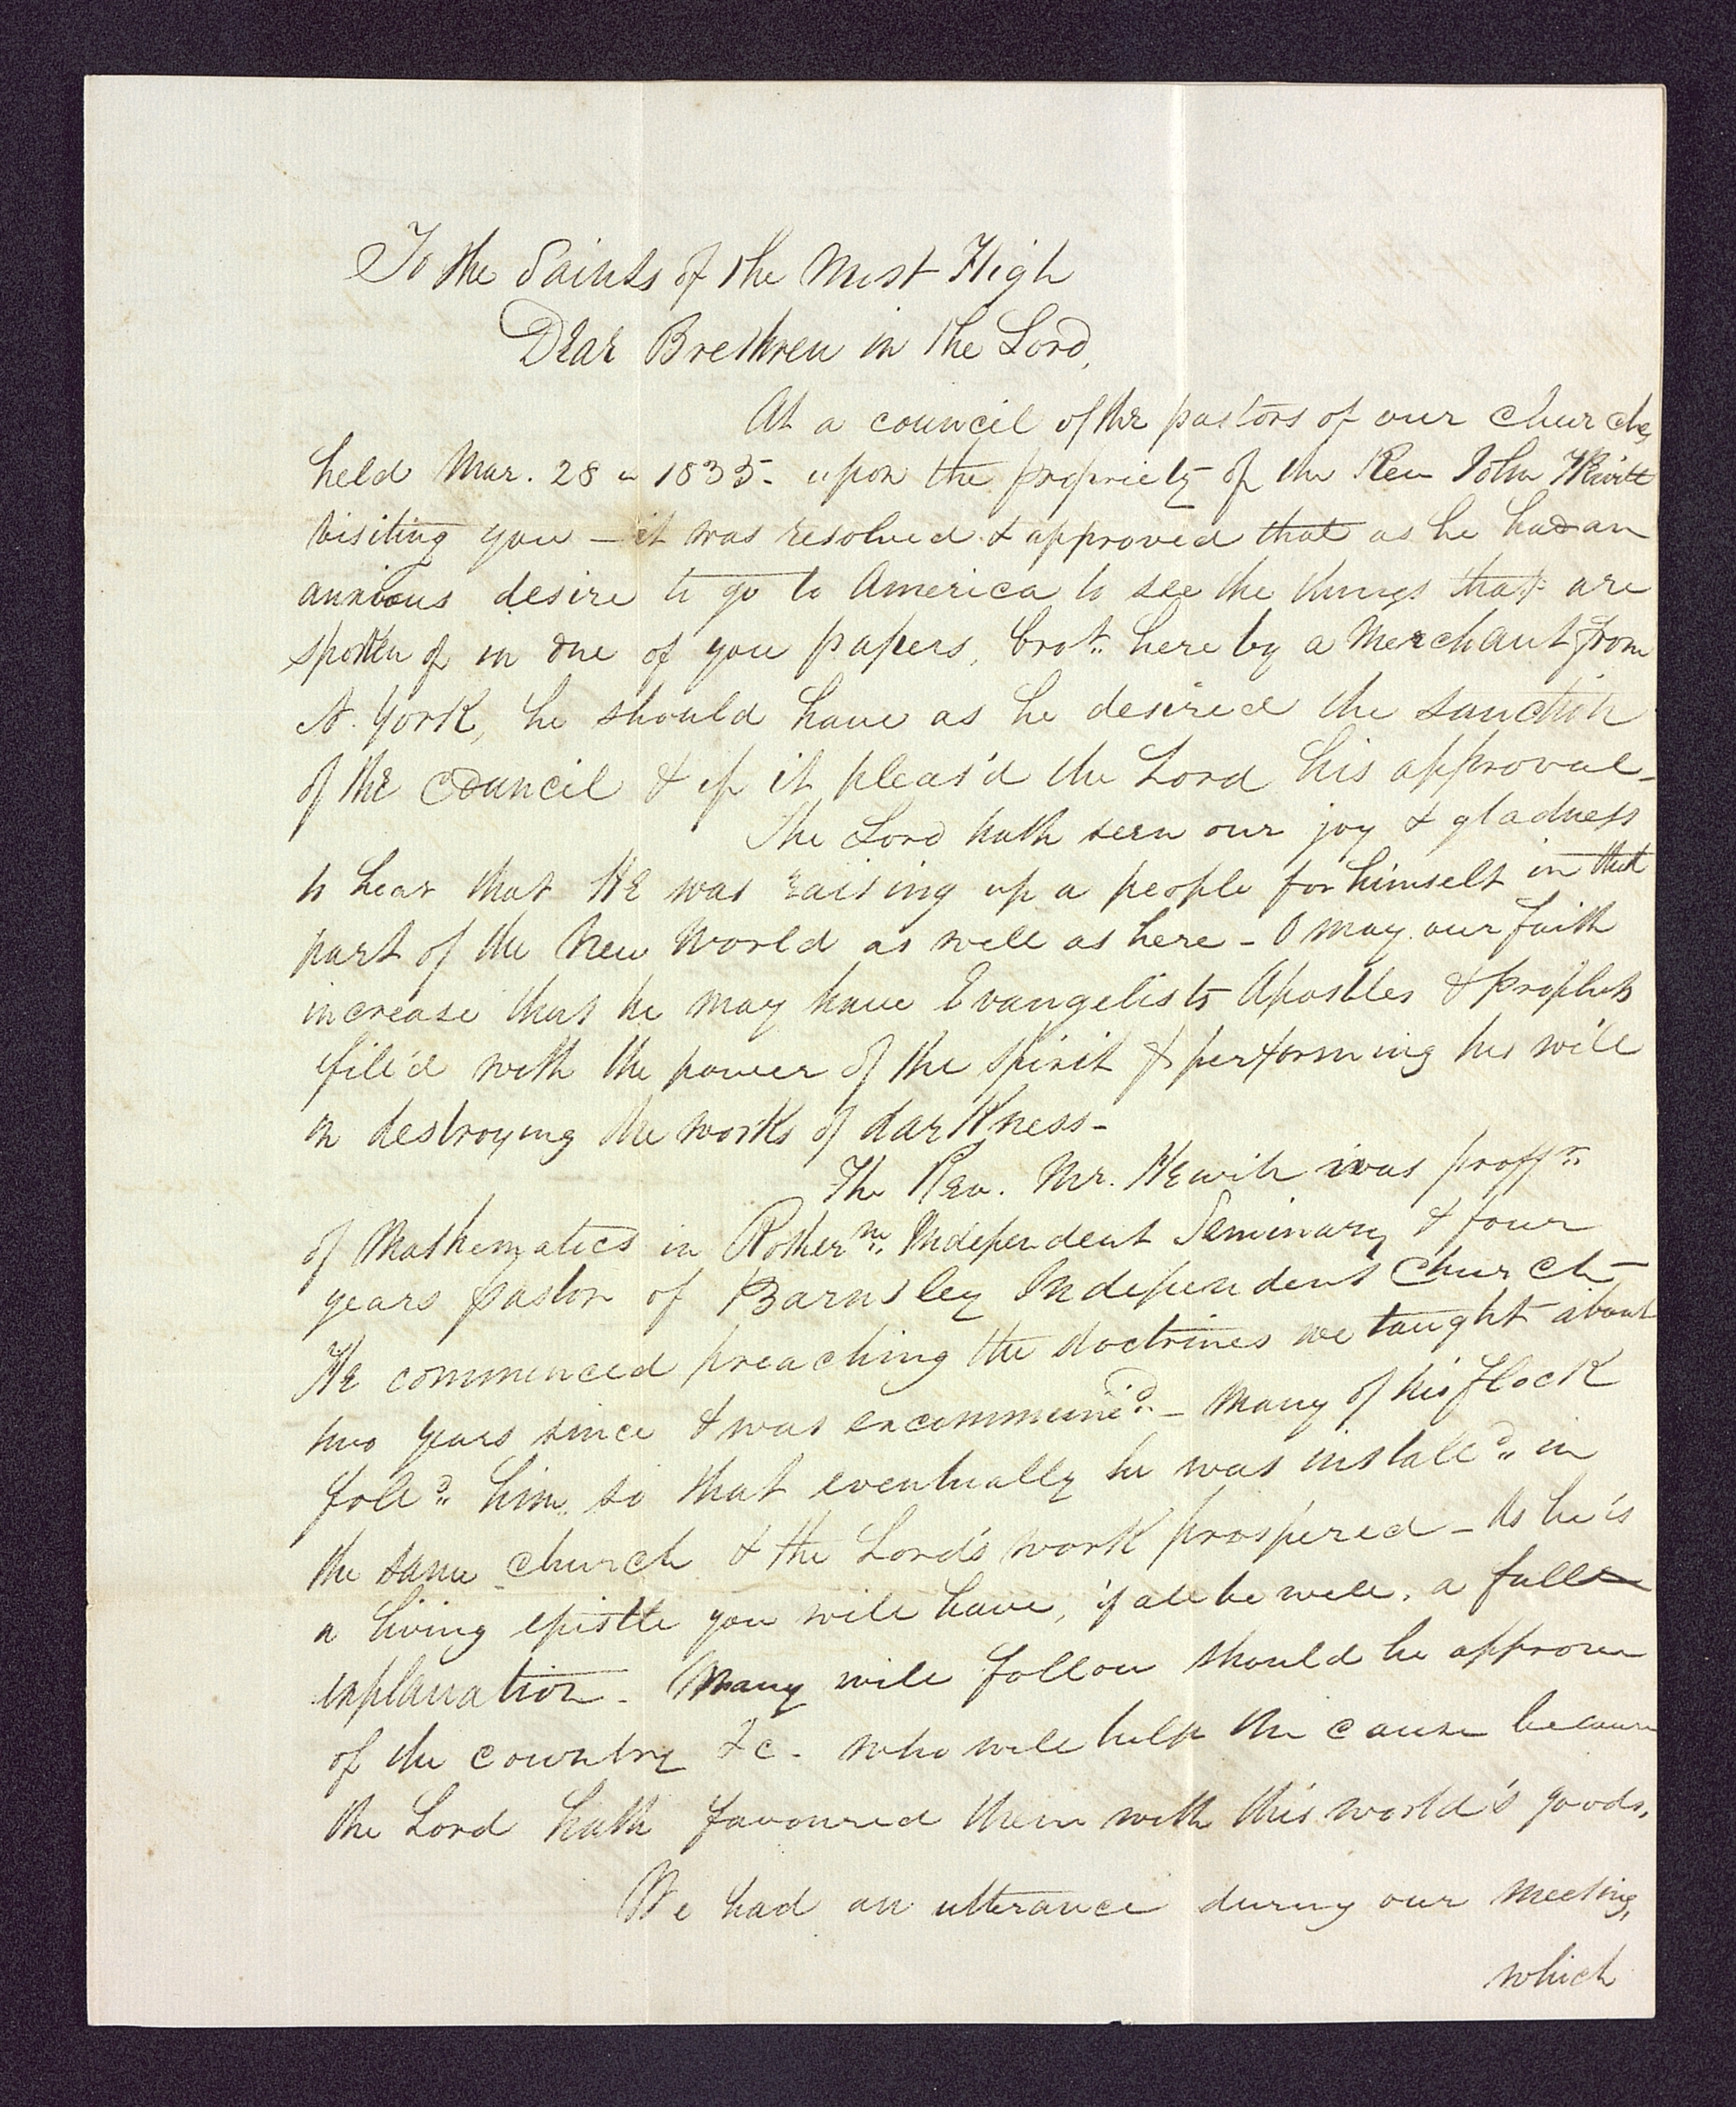 To the Saints of the Most High
Dear Brethren in the Lord,
At a council of the pastors of our churches
held Mar. 28 " 1835 - upon the propriety of the Rev John Hewitt
visiting you - it was resolved & approved that as he had an
anxious desire to go to America to see the things that are
spoken of in one of you papers, bro.t here by a Merchant from
N. York, he should have as he desired the sanction
of the council & if it pleas'd the Lord his approval -
The Lord hath seen our joy & gladness
to hear that He was raising up a people for himself in that
part of the New World as well as here - O may our faith
increase that he may have Evangelists Apostles & prophets
fill'd with the power of the spirit & performing his will
in destroying the works of darkness -
The Rev. Mr. Hewitt was proff.r
of Mathematics in Rother.m Independent Seminary & four
years pastor of Barnsley Independent Church -
He commenced preaching the doctrines we taught about
two years since & was excommuni.d - Many of his flock
foll.d him so that eventually he was install.d in
the same church & the Lord's work prospered - As he is
a living epistle you will have, if all be well, a full
explanation - Many will follow should he approve
of the country &c. who will help the cause because
the Lord hath favoured them with this world's goods.
We had an utterance during our meeting,
which